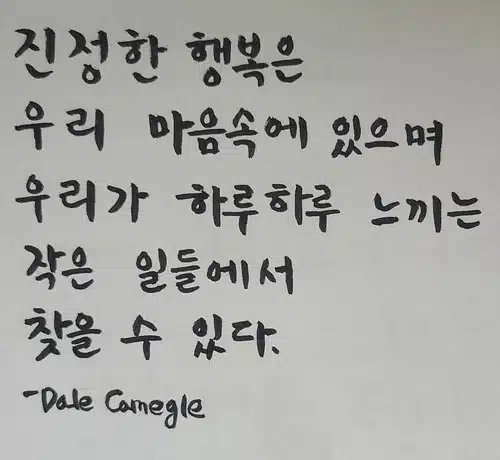 진정한 행복은
우리 마음속에 있으며
우리가 하루하루 느끼는
작은 일들에서
찾을 수 있다.
-Dale Carnegle